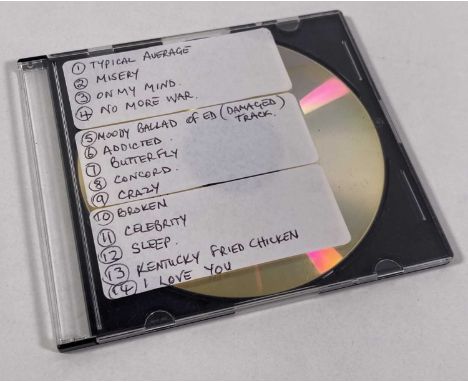 ① TYPICAL AVERAGE
② MISERY
③ ON MY MIND.
④ NO MORE WAR.
⑤ MOODY BALLAD of ED (DAMAGED TRACK.)
⑥ ADDICTED.
⑦ BUTTERFLY
⑧ CONCORD.
⑨ CRAZY
⑩ BROKEN
⑪ CELEBRITY
⑫ SLEEP.
⑬ KENTUCKY FRIED CHICKEN
⑭ I LOVE YOU